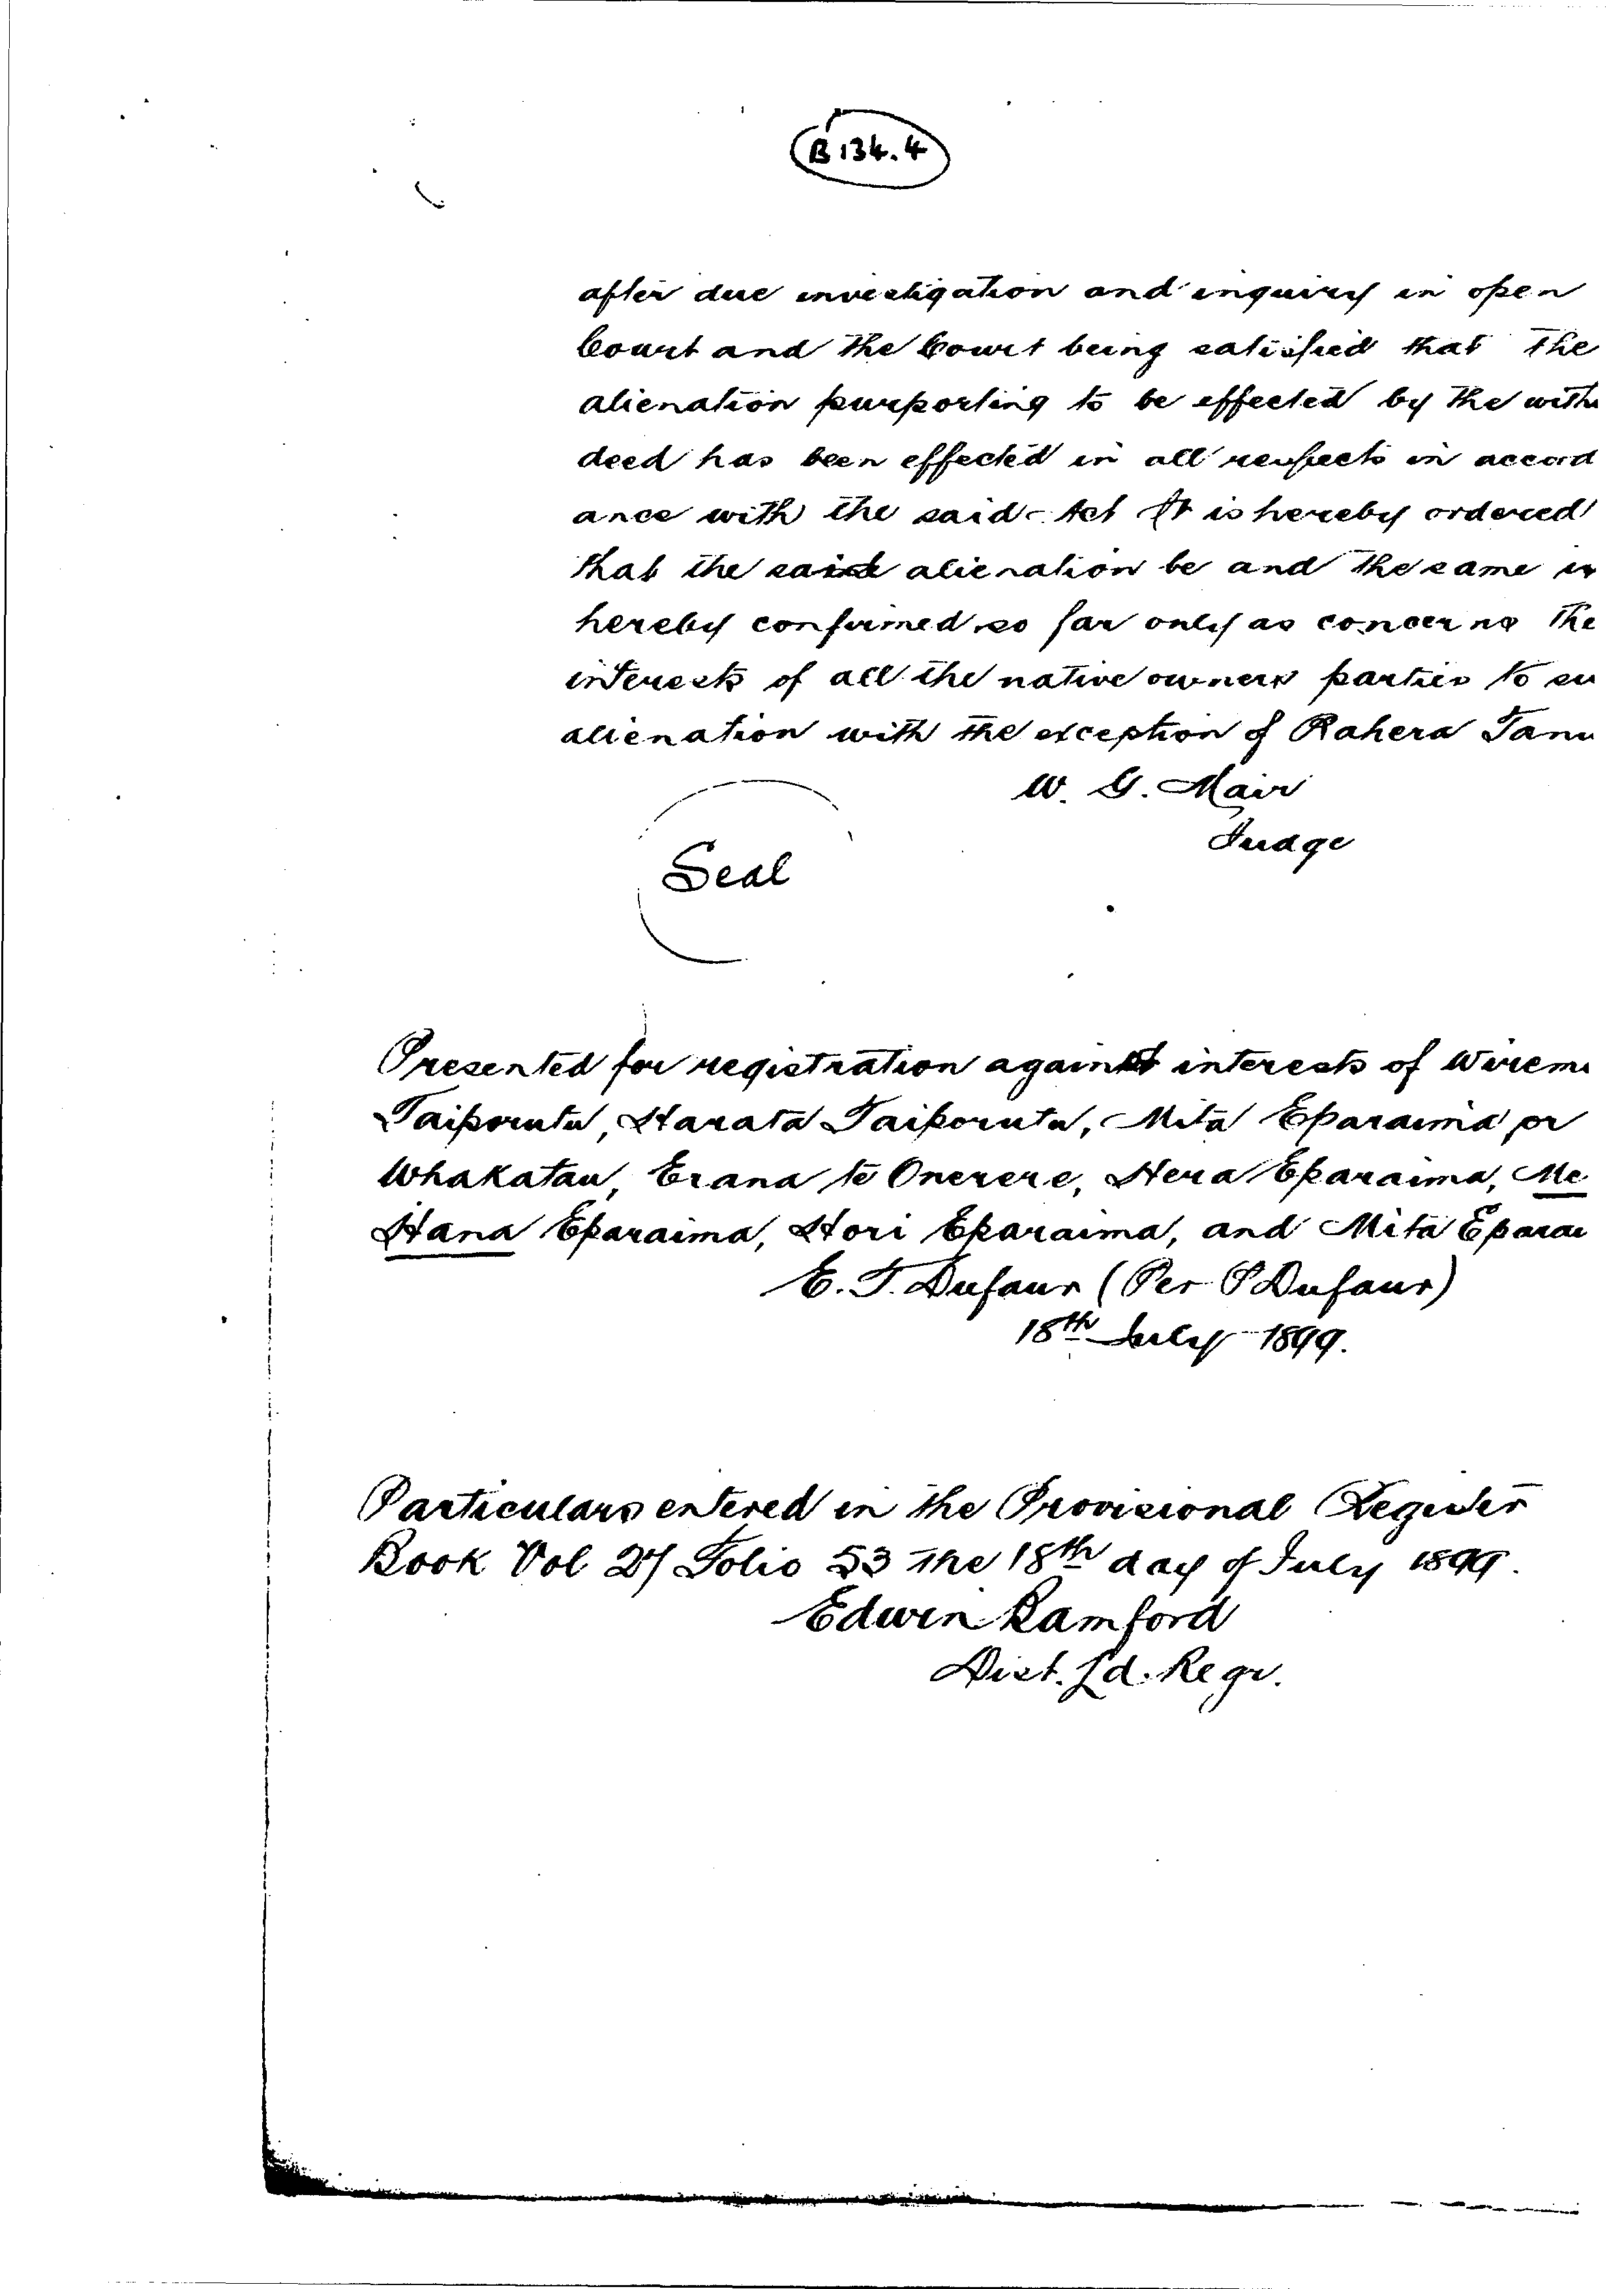 B 134.4
after due investigation and inquiry in open
Court and the Court being satisfied that the
alienation purporting to be effected by the
deed has been effected in all respects in accord
ance with the said Act It is hereby ordered
that the said alienation be and the same is
hereby confirmed so far only as concerns the
interests of all the native owners parties to
alienation with the exception of Rahera
W. G. Mair
Judge
Seal
Presented for registration against interests of
Taiporutu, Harata Taiporutu, Mita Eparaima or
Whakatau, Erana te Onerere, Hera Eparaima, Me
Hana Eparaima, Hori Eparaima, and Mita
E. T. Dufaur (Per P Dufaur)
18th July 1899.
Particulars entered in the Provisional Register
Book Vol 27 Folio 53 the 18th day of July 1899.
Edwin Bamford
Dist. Ld. Regr.